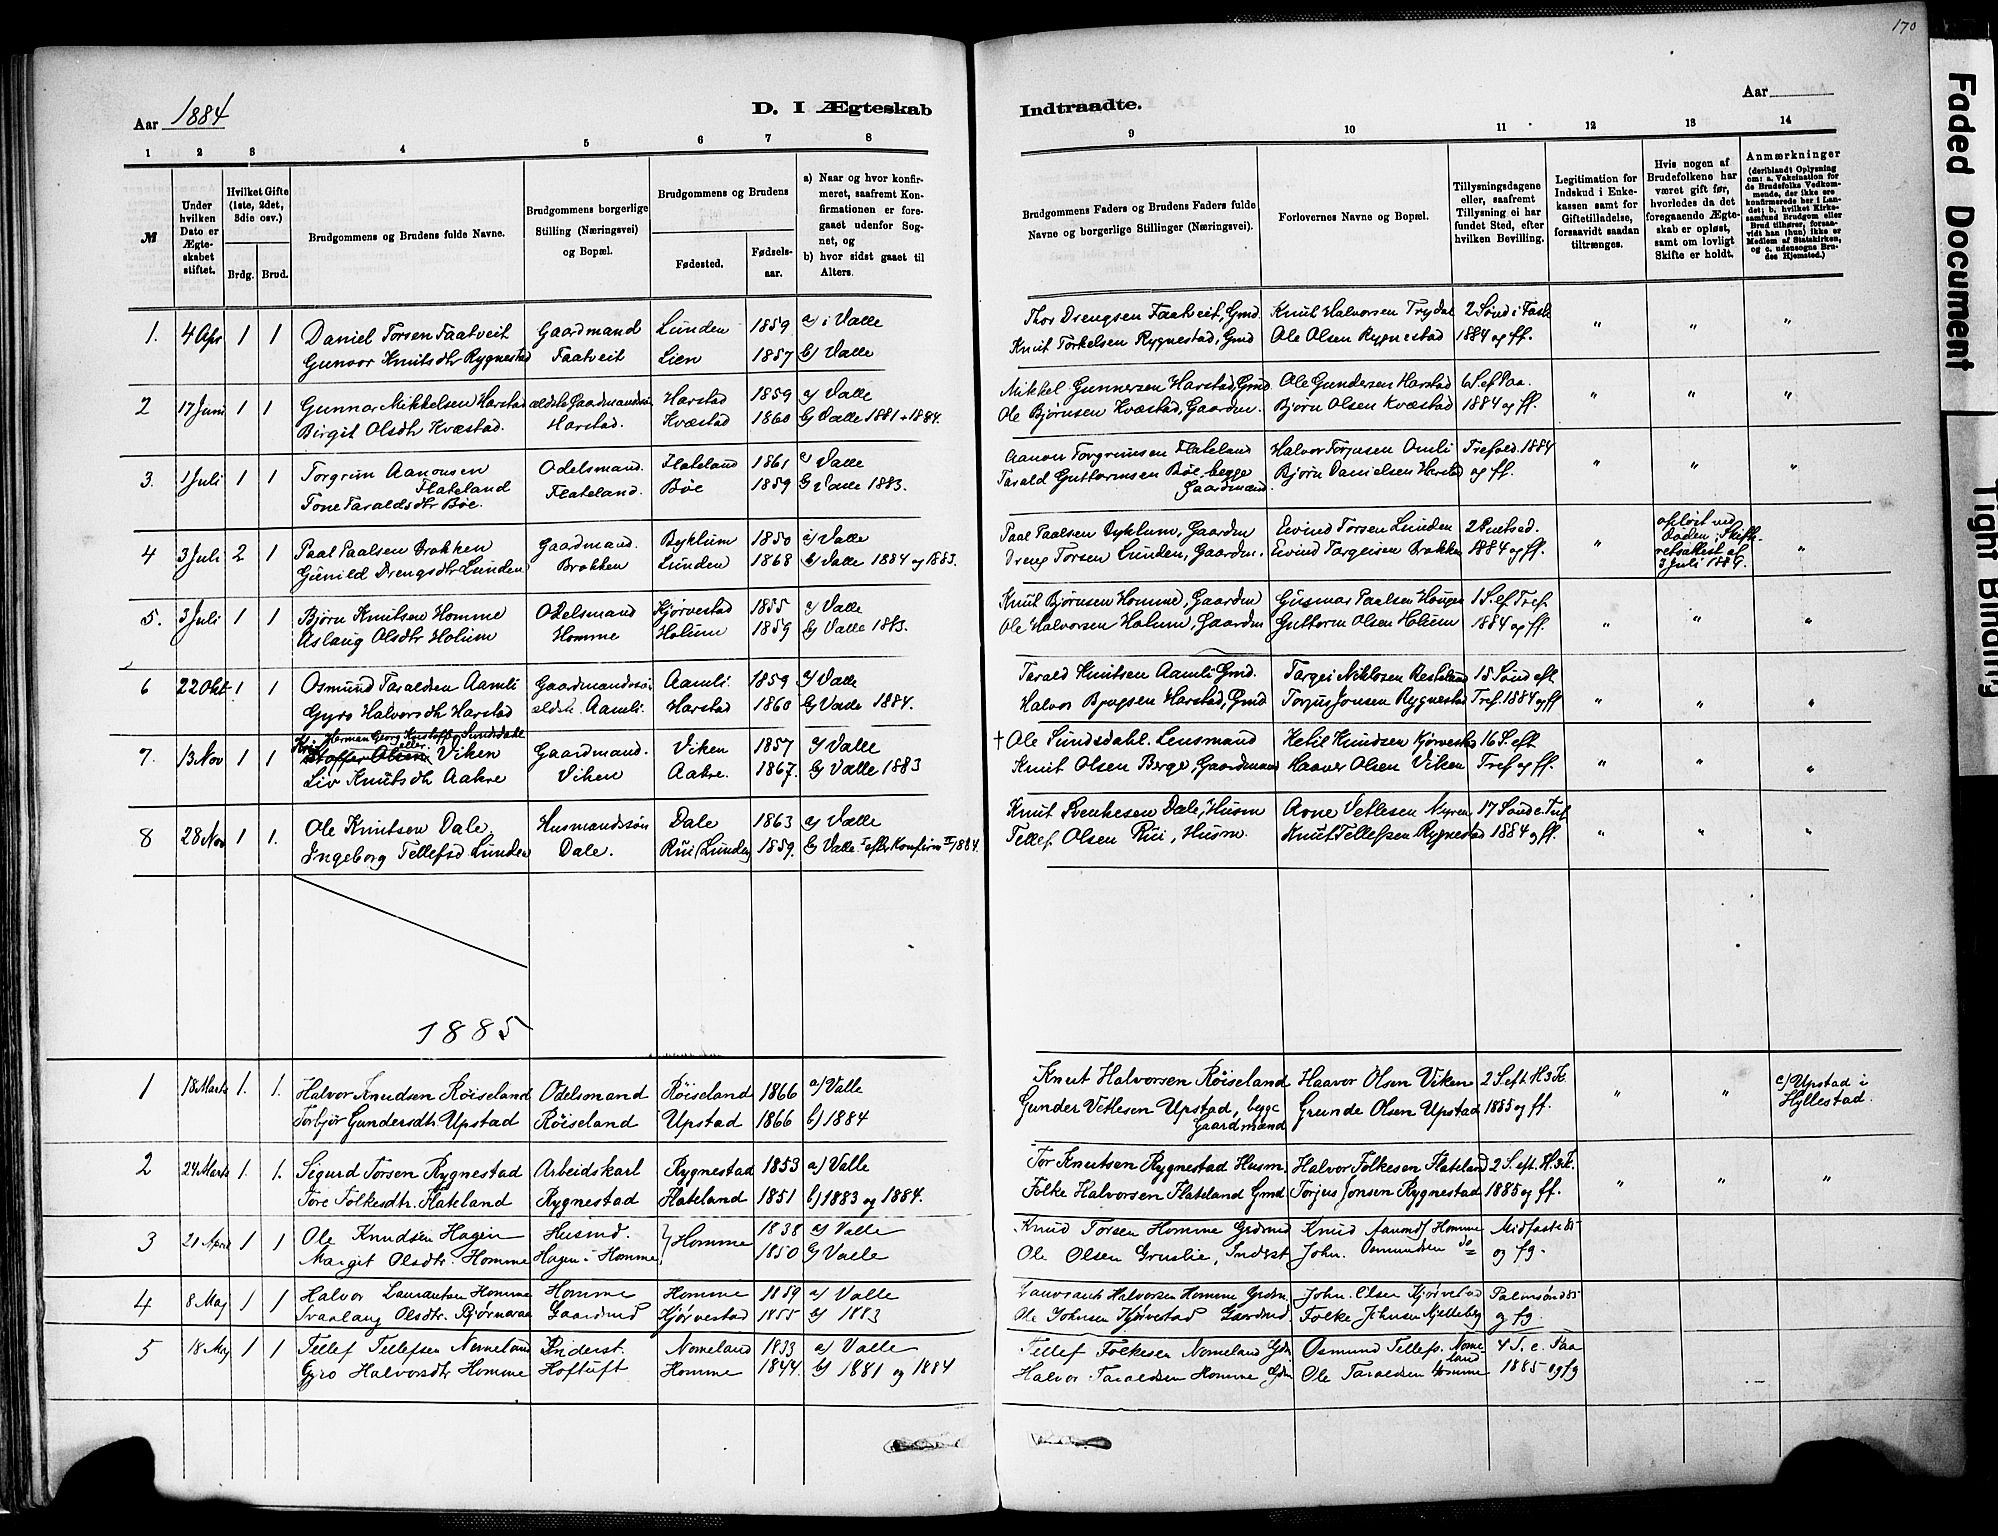 170
Aar 1884
D. I Ægteskab
Indtraadte.
Aar
1 2 3 4 5 6 7 8
9 10 11 12 13 14
№
Under hvilken Dato er Ægteskabet stiftet.
Hvilket Gifte (1ste, 2det, 3die osv.)
Brdg. Brud.
Brudgommens og Brudens fulde Navne.
Brudgommens borgerlige Stilling (Næringsvei) og Bopæl.
Brudgommens og Brudens
Fødested. Fødselsaar.
a) Naar og hvor konfirmeret, saafremt Konfirmationen er foregaaet udenfor Sognet, og
b) hvor sidst gaaet til Alters.
Brudgommens Faders og Brudens Faders fulde Navne og borgerlige Stillinger (Næringsvei).
Forlovernes Navne og Bopæl.
Tillysningsdagene eller, saafremt Tillysning ei har fundet Sted, efter hvilken Bevilling.
Legitimation for Indskud i Enkekassen samt for Giftetilladelse, forsaavidt saadan tiltrænges.
Hvis nogen af Brudefolkene har været gift før, hvorledes da det foregaaende Ægteskab er opløst, samt om lovligt Skifte er holdt.
Anmærkninger (deriblandt Oplysning om: a. Vakcination for de Brudefolks Vedkommende, der ikke ere konfirmerede her i Landet; b. hvilket Kirkesamfund Brudgom eller Brud tilhører, forsaavidt han (hun) ikke er Medlem af Statskirken, og c. udensogns Brudes Hjemsted.)
1. 4 Apr 1 1 Daniel Torsen Faatveit Gaardmand Lunden 1859 a) i Valle Thor Drengsen Faatveit, Gmd Knut Halvorsen Trydal 2 Sønd i Fast.
Gunvor Knutsdtr Rygnestad Faatveit Lien 1857 b) Valle Knut Torkelsen Rygnestad, Gmd Ole Olsen Rygnestad 1884 og ff.
2 17 Juni 1 1 Gunnar Mikkelsen Harstad ældste Gaardmandssøn Harstad 1859 a) Valle Mikkel Gunnersen Harstad, Gmd Ole Gundersen Harstad 6 S. ef Paa.
Birgit Olsdtr Kvæstad. Harstad. Kvæstad 1860 b) Valle 1881 + 1884. Ole Bjørnsen Kvæstad, Gaardm. Bjørn Olsen Kvæstad 1884 og ff.
3. 1 Juli 1 1 Torgrim Aanonsen Flateland Odelsmand. Flateland 1861 a) Valle Aanon Torgrimsen Flateland Halvor Torjusen Omli Trefold. 1884
Tone Taraldsdtr Bøe. Flateland. Bøe 1859 b) Valle 1883. Tarald Guttormsen Bøe, begge Gaardmænd. Bjørn Danielsen Harstad og ff.
4 3 Juli 2 1 Paal Paalsen Brokken Gaardmand. Byklum 1850 a) Valle Paal Paalsen Byklum, Gaardm Eivind Torsen Lunden 2 Pintsed. opløst ved Døden; Skifteretsattest af 3 Juli 1884.
Gunild Drengsdtr Lunden Brokken Lunden 1868 b) Valle 1884 og 1883. Dreng Torsen Lunden, Gaardm. Eivind Targeisen Brokken 1884 og ff.
5. 3 Juli 1 1 Bjørn Knutsen Homme Odelsmand Kjørvestad 1855 a) Valle Knut Bjørnsen Homme, Gaardm Gunnar Paalsen Haugen 1 S. ef Tref.
Aslaug Olsdtr Holum Homme Holum 1859 b) Valle 1883. Ole Halvorsen Holum, Gaardm Guttorm Olsen Holum 1884 og ff.
6 22 Okt 1 1 Osmund Taraldsen Aamli Gaardmandssøn Aamli. 1859 a) Valle Tarald Knutsen Aamli Gmd. Targei Niklosen Rosteland 15 Sønd eft.
Gyro Halvorsdtr Harstad ældste. Aamli. Harstad 1860 b) Valle 1884. Halvor Harstad, Gmd Torjus Jonsen Rygnestad Tref. 1884 og ff
7. 13 Nov 1 1 Herman Georg Kristoffer Sundsdahl eller Viken Gaardmand. Viken 1857 a) Valle † Ole Sundsdahl. Lensmand Ketil Knudsen Kjørvestad 16 S. eft
Liv Knutsdtr Aakre Viken Aakre. 1867. b) Valle 1883 Knut Olsen Berge, Gaardmand Haavor Olsen Viken Tref og ff.
8 28 Nov 1 1. Ole Knutsen Dale Husmandssøn Dale 1863 a) Valle Knut Svenkesen Dale, Husm Arne Vetlesen Myren 17 Sønd e. Tref
Ingeborg Tellefsd Lunden Dale. Rui (Lunden) 1859. b) Valle efter Konfirm 1884. Tellef Olsen Rui, Husm. Knut Tellefsen Rygnestad 1884 og ff.
1885
1 18 Marts 1. 1. Halvor Knudsen Røiseland Odelsmand Røiseland 1866 a) Valle Knut Halvorsen Røiseland Haavor Olsen Viken 2 S. eft. H.3.K. c) Upstad i Hyllestad.
Torbjør Gundersdtr. Upstad Røiseland Upstad 1866 b) 1884 Gunder Vetlesen Upstad, begge Gaardmænd Grunde Olsen Upstad 1885 og ff.
2 24 Marts 1. 1. Sigurd Torsen Rygnestad Arbeidskarl Rygnestad 1853 a) Valle Tor Knutsen Rygnestad Husm. Halvor Folkesen Flateland 2 S. eft. H.3.K.
Tore Folkesdtr. Flateland Rygnestad Flateland 1851 b) 1883 og 1884. Folke Halvorsen Flateland Gmd Torjus Jonsen Rygnestad 1885 og ff.
3 21 April 1 1 Ole Knudsen Hagen Husmd. } Homme 1838 a) Valle Knud Torsen Homme Grdmd Knud Aamundss Homme Midfaste 85
Margit Olsdtr. Homme Hagen i Homme 1850 b) Valle Ole Olsen Gruslie, Inderst John. Osmundsen do og fg.
4 8 Maj 1 1 Halvor Laurantsen Homme Homme Homme 1859 a) Valle Laurants Halvorsen Homme Grdm. John. Olsen Kjørvestad Palmsønd 85
Svaalaug Olsdtr. Bjørnaraa Gaardmd Kjørvestad 1855 b) 1883 Ole Johnsen Kjørvestad Gaardmd Folke Johnsen Kjelleberg og fg.
5 18 Maj 1 1 Tellef Tellefsen Nomeland Inderst. Nomeland 1833 a) Valle Tellef Folkesen Nomeland Gdm Osmund Tellefs. Nomeland 4 S. e. Paa
Gyro Halvorsdtr Homme Hoftuft Homme 1844. b) 1881 og 1884 Halvor Taraldsen Homme Gdm Ole Taraldsen Homme 1885 og fg
Faded Document
Tight Binding